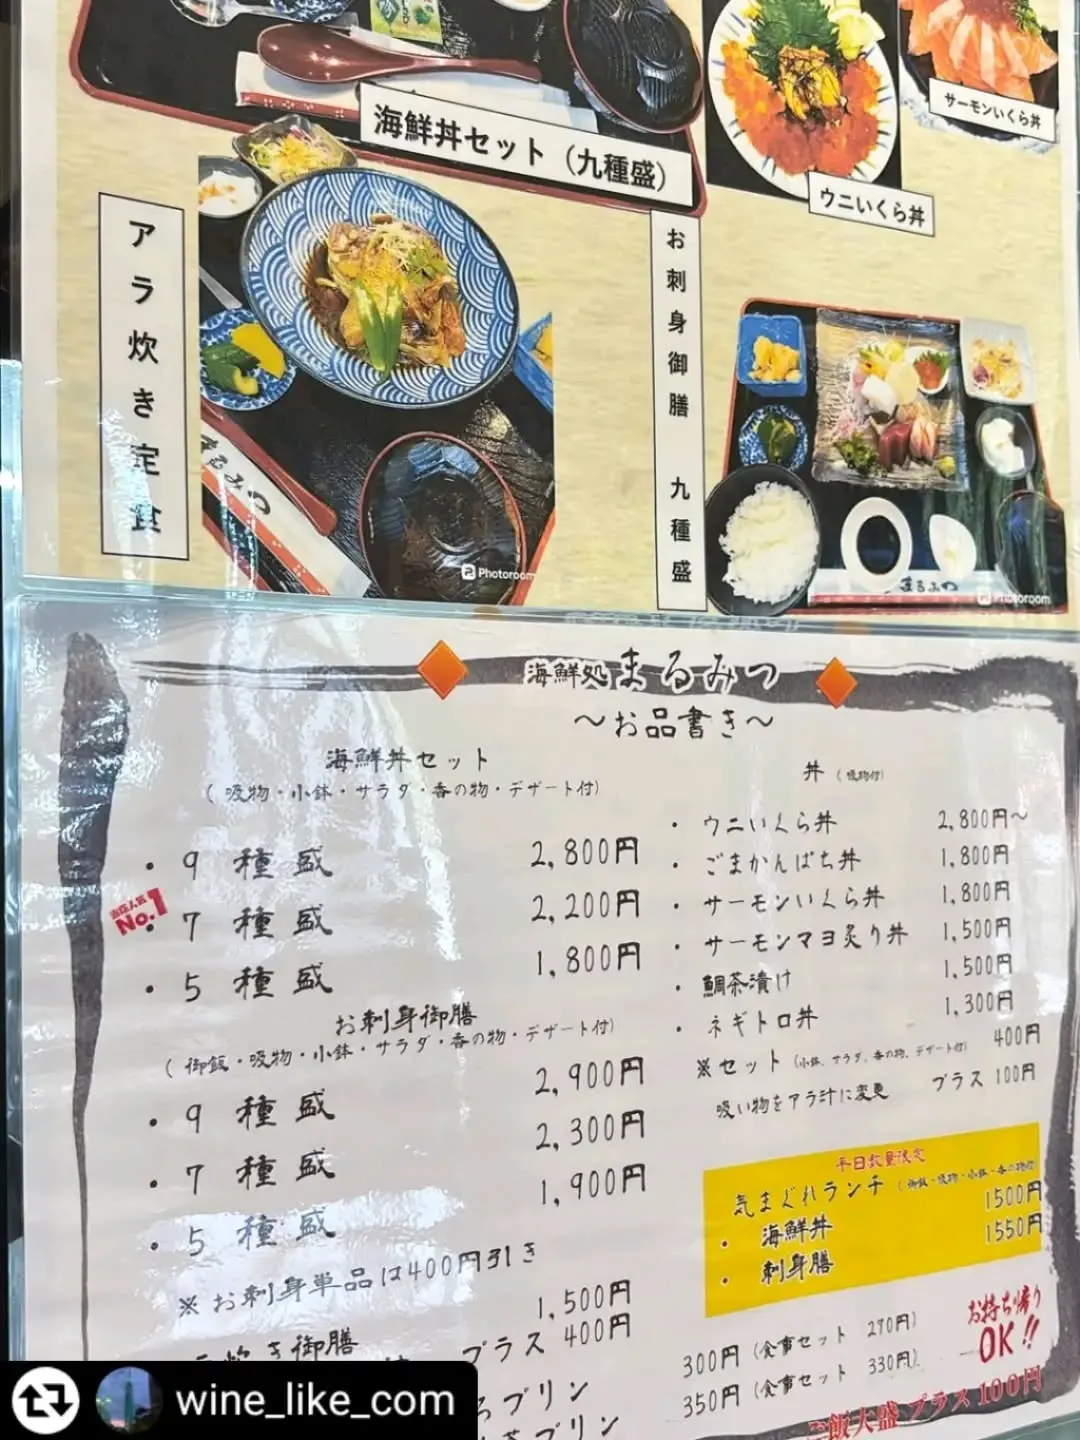 海鮮丼セット（九種盛）
サーモンいくら丼
ウニいくら丼
アラ炊き定食
お刺身御膳 九種盛
まるみつ
Photoroom
まるみつ
Photoroom
海鮮処まるみつ
～お品書き～
海鮮丼セット
(吸物・小鉢・サラダ・香の物・デザート付)
・9種盛 2,800円
No.1
・7種盛 2,200円
・5種盛 1,800円
お刺身御膳
(御飯・吸物・小鉢・サラダ・香の物・デザート付)
・9種盛 2,900円
・7種盛 2,300円
・5種盛 1,900円
※お刺身単品は400円引き
炊き御膳 1,500円
プラス 400円
プリン 300円 (食事セット 270円)
プリン 350円 (食事セット 330円)
丼 (吸物付)
・ウニいくら丼 2,800円～
・ごまかんぱち丼 1,800円
・サーモンいくら丼 1,800円
・サーモンマヨ炙り丼 1,500円
・鯛茶漬け 1,500円
・ネギトロ丼 1,300円
※セット (小鉢、サラダ、香の物、デザート付) 400円
吸い物をアラ汁に変更 プラス 100円
平日数量限定
気まぐれランチ (御飯・吸物・小鉢・香の物付)
・海鮮丼 1500円
・刺身膳 1550円
お持ち帰り
OK!!
ご飯大盛 プラス 100円
wine_like_com